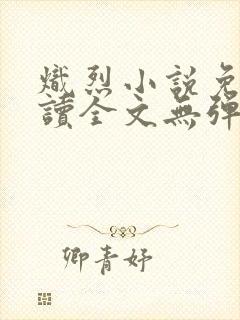 熾烈小說免
讀全文無彈
卿青妤